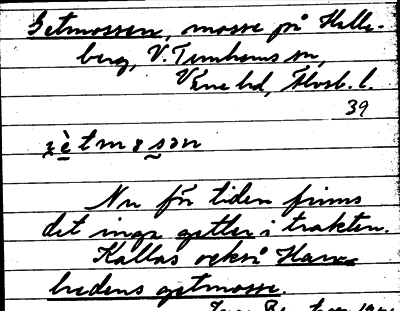 Getmossen, mosse på Halle-
berg, V. Tunhems sn,
Väne hd, Älvsb. l.
39
Nu för tiden finns
det inga getter i trakten.
Kallas också Han
bredens getmosse.